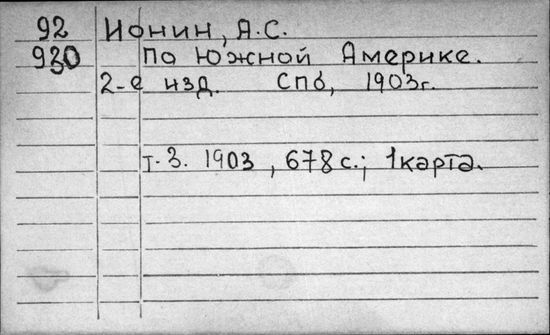 92 Ионин, А.С.
930 По Южной Америке.
2-е изд. Спб, 1903г.
т.3. 1903, 678 с.; 1 карта.